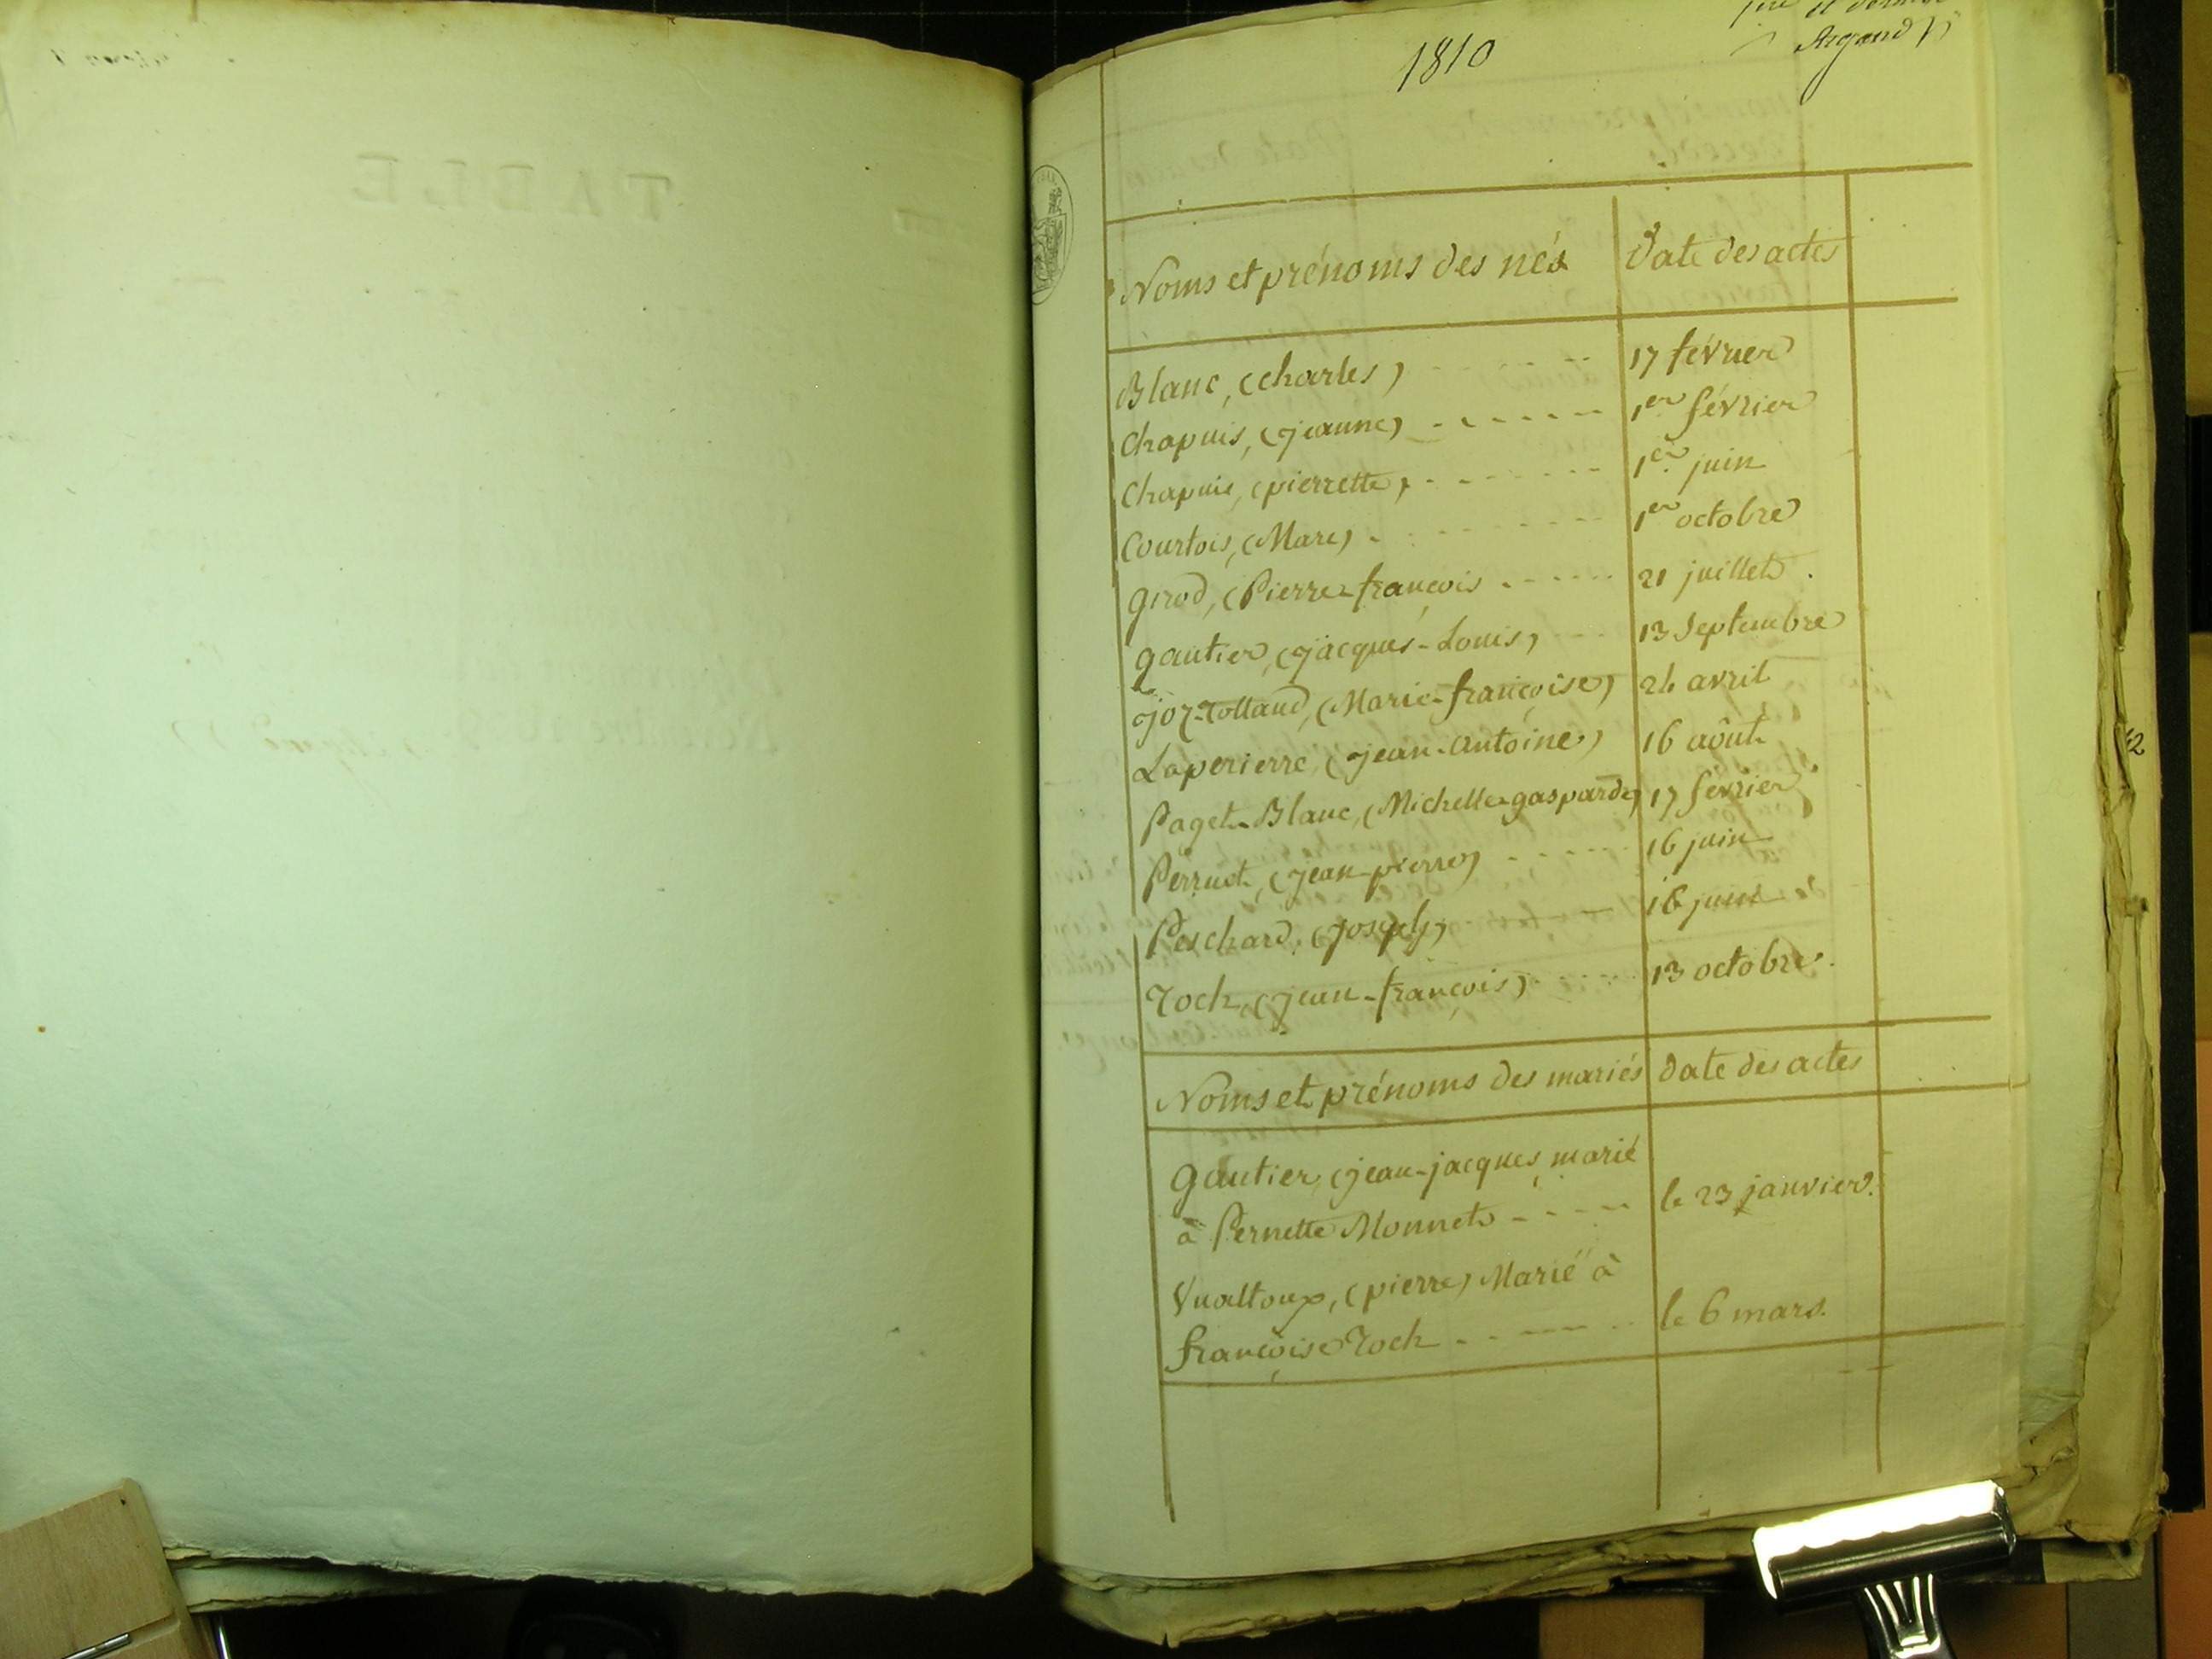 1810
Argand
Noms et prénoms des nés Date des actes
Blanc, (charles) 17 février
Chapuis, (jeanne) 1er février
Chapuis, (pierrette) 1er juin
Courtois, (Marc) 1er octobre
girod, (Pierre-françois 21 juillet
gautier, (jacques-Louis) 13 Septembre
joz-rolland, (Marie-françoise) 24 avril
Laperierre, (jean-antoine) 16 août
Paget-Blanc, (Michelle-gasparde) 17 février
Perruet, (jean-pierre) 16 juin
Peschard, (joseph) 16 juin
roch, (jean-françois) 13 octobre
Noms et prénoms des mariés Date des actes
gautier, (jean-jacques, marié
à Pernette Monnet le 23 janvier
Vualtoux, (pierre) Marié à
françoise roch le 6 mars.